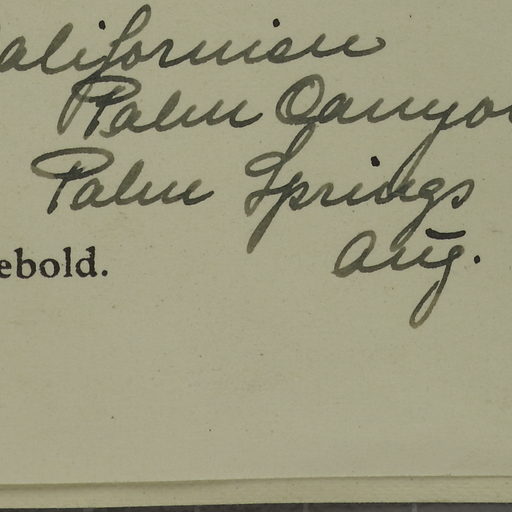 Californien
Palm Canyon
Palm Springs
Aug.
ebold.